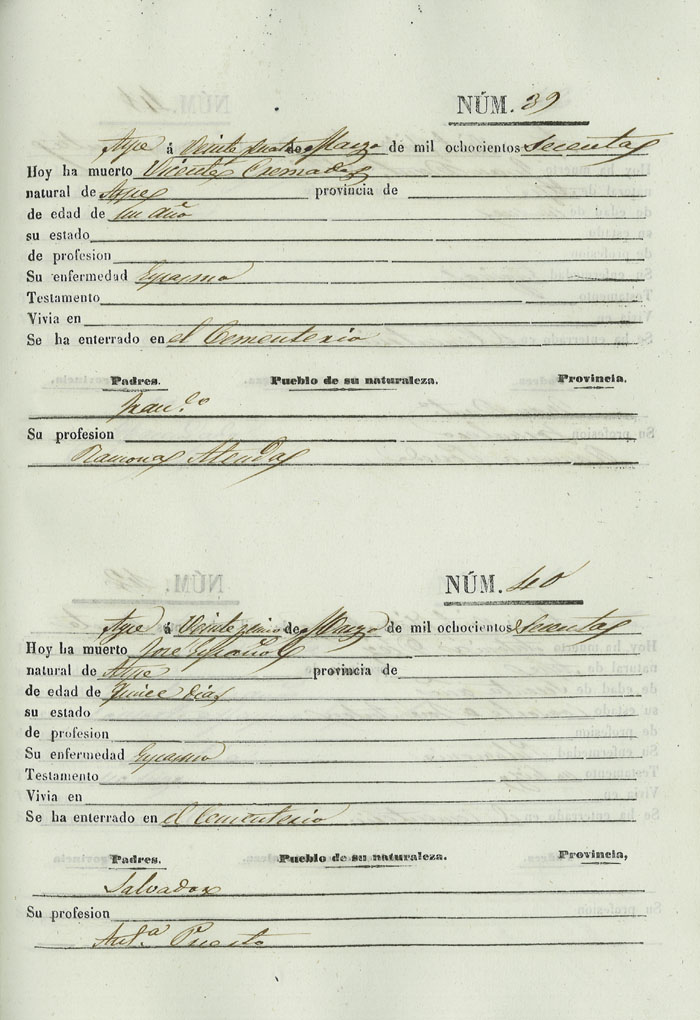 NÚM. 39
Aspe á Veinte cuatro de Marzo de mil ochocientos secenta
Hoy ha muerto Vicente Cremades
natural de Aspe provincia de
de edad de un año
su estado
de profesion
Su enfermedad Espasmo
Testamento
Vivia en
Se ha enterrado en el Cementerio
Padres. Pueblo de su naturaleza. Provincia.
Fran.co
Su profesion
Ramona
NÚM. 40
Aspe á Veinte de Marzo de mil ochocientos secenta
Hoy ha muerto Jose
natural de Aspe provincia de
de edad de Quince dias
su estado
de profesion
Su enfermedad Espasmo
Testamento
Vivia en
Se ha enterrado en el Cementerio
Padres. Pueblo de su naturaleza. Provincia,
Salvador
Su profesion
Ant.a Puerto